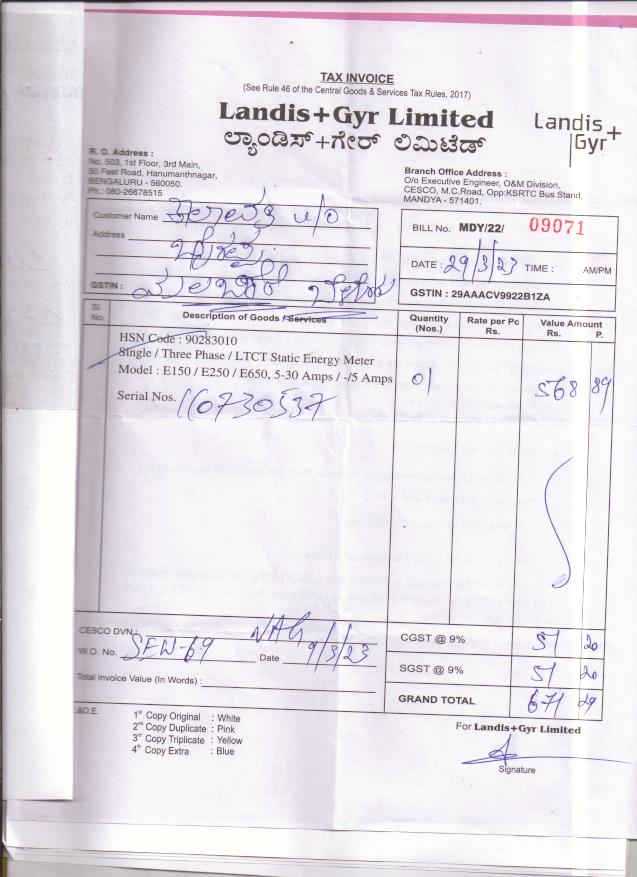 TAX INVOICE
(See Rule 46 of the Central Goods & Services Tax Rules, 2017)
Landis+Gyr Limited
ಲ್ಯಾಂಡಿಸ್+ಗೇರ್ ಲಿಮಿಟೆಡ್
Landis+
Gyr
R. O. Address :
No. 503, 1st Floor, 3rd Main,
50 Feet Road, Hanumanthnagar,
BENGALURU - 560050.
Ph.: 080-26678515
Branch Office Address :
O/o Executive Engineer, O&M Division,
CESCO, M.C.Road, Opp:KSRTC Bus Stand,
MANDYA - 571401.
Customer Name
Address
GSTIN :
BILL No. MDY/22/ 09071
DATE : 29/3/23 TIME : AM/PM
GSTIN : 29AAACV9922B1ZA
Sl. No. Description of Goods / Services Quantity (Nos.) Rate per Pc Rs. Value Amount Rs. P.
HSN Code : 90283010
Single / Three Phase / LTCT Static Energy Meter
Model : E150 / E250 / E650, 5-30 Amps / -/5 Amps 01 568 89
Serial Nos. 160730537
CESCO DVN.:
W.O. No. SFW-69 Date 9/3/23
Total Invoice Value (In Words) :
CGST @ 9% 51 20
SGST @ 9% 51 20
GRAND TOTAL 671 29
E.&O.E.
1st Copy Original : White
2nd Copy Duplicate : Pink
3rd Copy Triplicate : Yellow
4th Copy Extra : Blue
For Landis+Gyr Limited
Signature